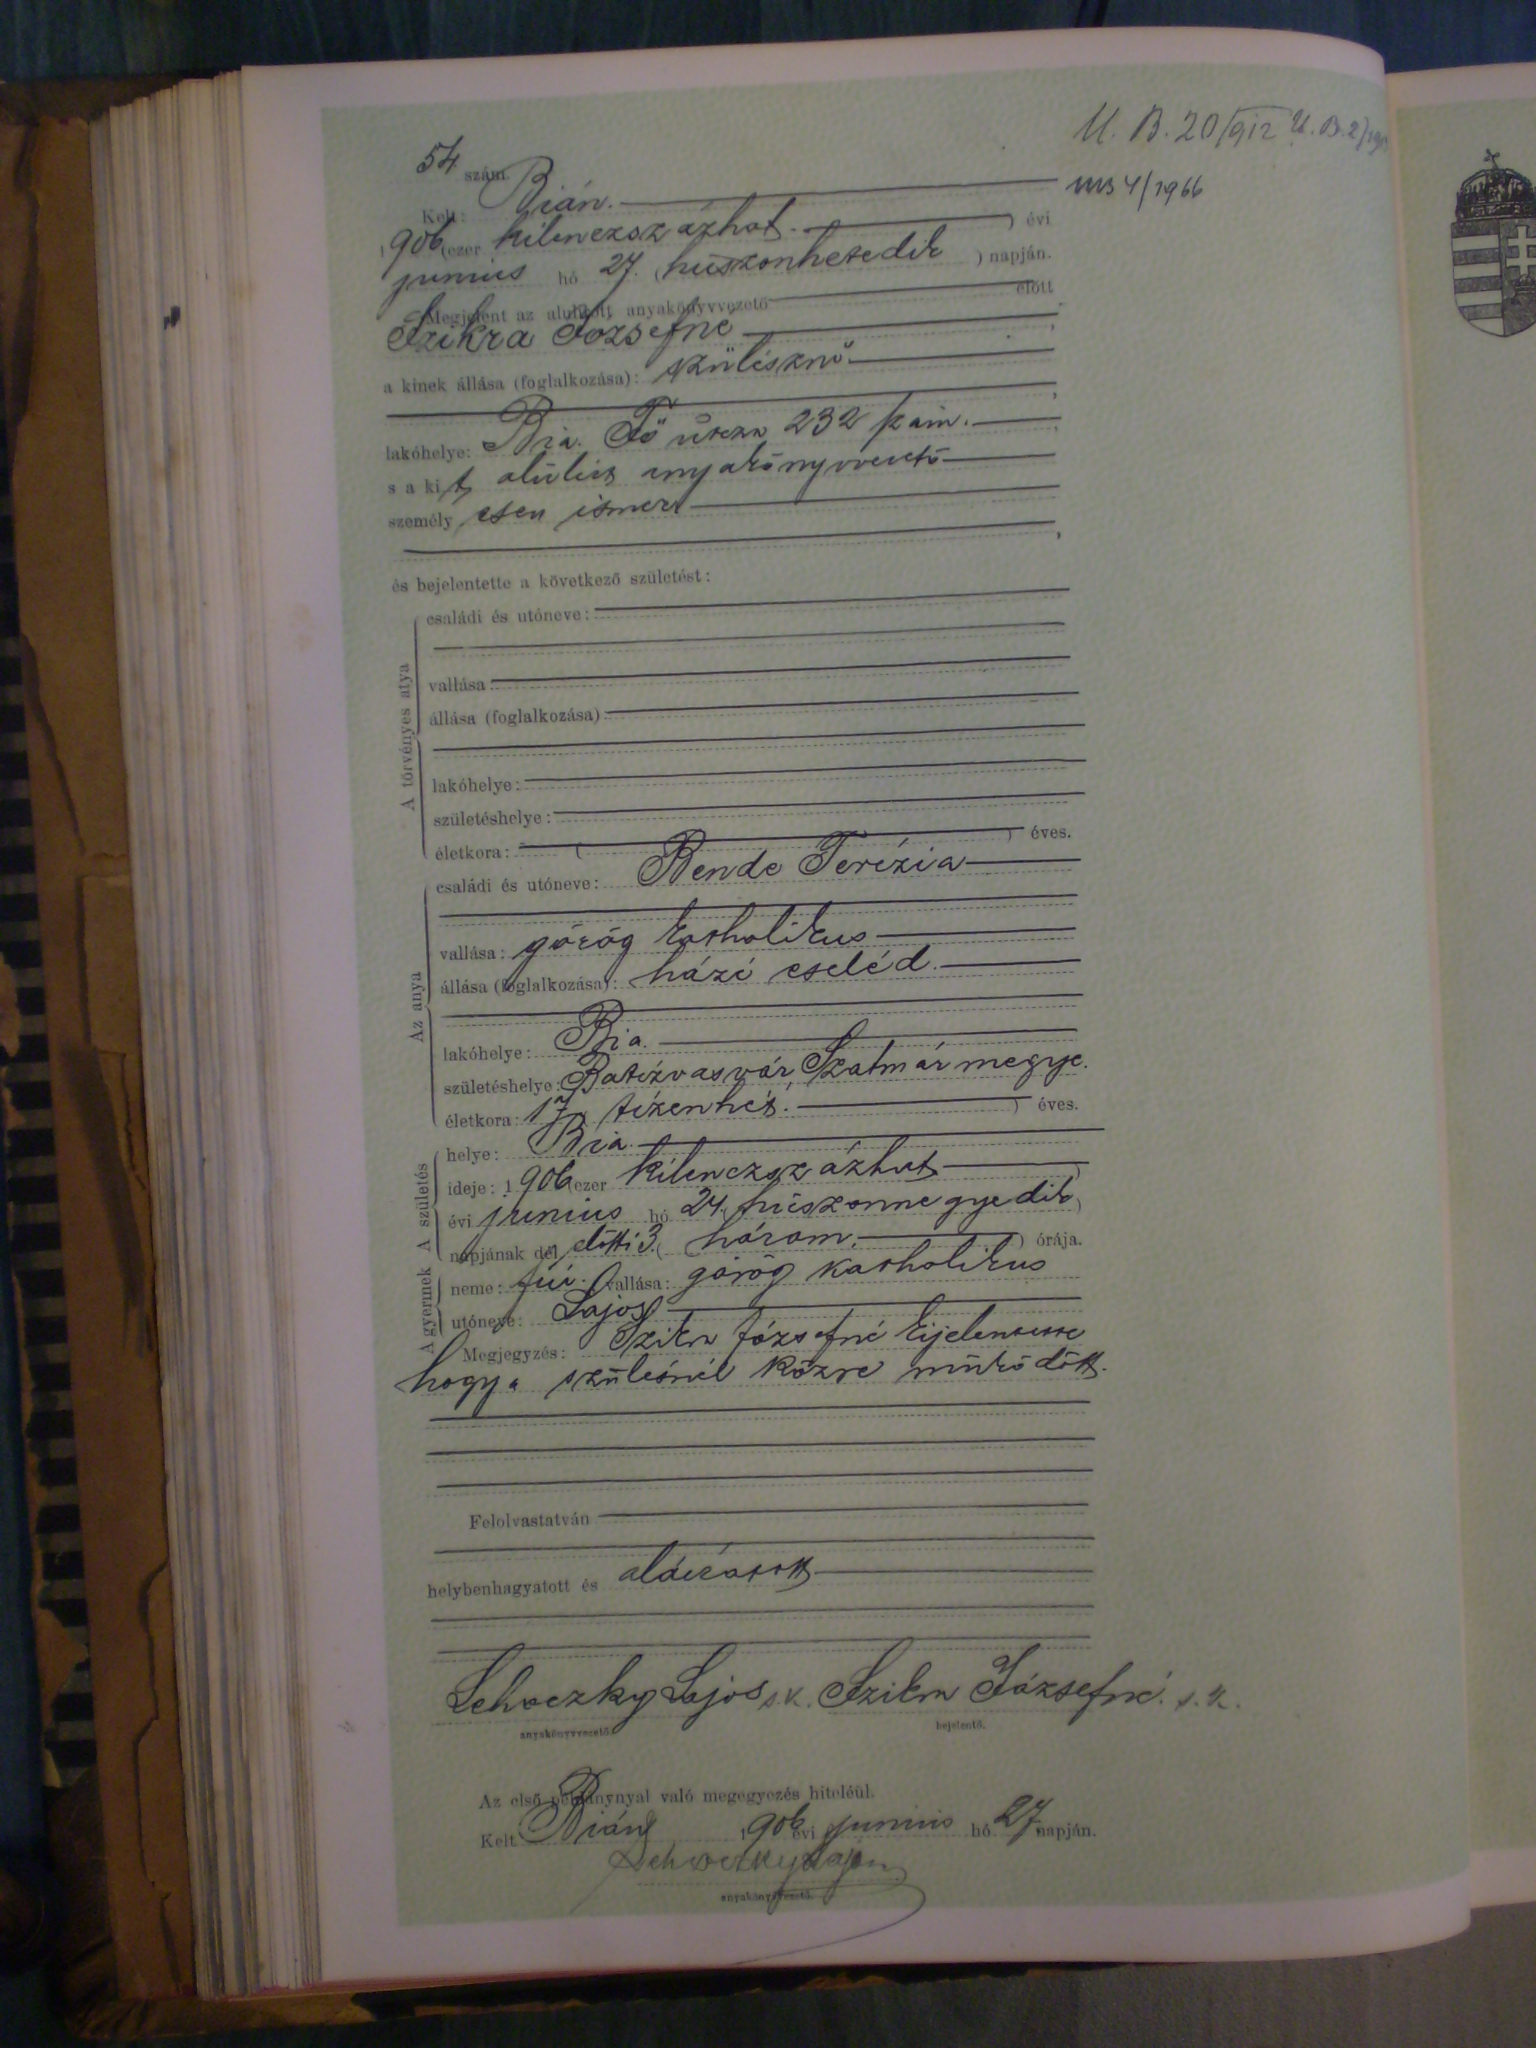 U. B. 20/912 U. B. 2/
54 szám.
Kelt: Bián.
4/1966
1906 (ezer kilenczszázhat. ) évi
junius hó 27. (huszonhetedik ) napján.
Megjelent az alulirott anyakönyvvezető előtt
Szikra Józsefné
a kinek állása (foglalkozása): szülésznő
lakóhelye: Bia. Fő utcza 232 szám.
s a kit alulirt anyakönyvvezető
személyesen ismer
és bejelentette a következő születést:
A törvényes atya
családi és utóneve:
vallása
állása (foglalkozása)
lakóhelye:
születéshelye:
életkora: ( ) éves.
Az anya
családi és utóneve: Bende Terézia
vallása: görög katholikus
állása (foglalkozása): házi cseléd.
lakóhelye: Bia.
születéshelye: Batizvasvár, Szatmár megye.
életkora: 17 ( tizenhét. ) éves.
A születés
helye: Bia.
ideje: 1906 (ezer kilenczszázhat )
évi junius hó 24. (huszonnegyedik)
napjának dél előtti 3. ( három. ) órája.
A gyermek
neme: fiú. vallása: görög katholikus
utóneve: Lajos
Megjegyzés: Szikra Józsefné kijelentette
hogy a szülésnél közre működött.
Felolvastatván
helybenhagyatott és aláiratott
Lehoczky Lajos s. k. Szikra Józsefné. s. k.
anyakönyvvezető. bejelentő.
Az első példánynyal való megegyezés hiteléül.
Kelt Bián 1906 évi junius hó 27 napján.
Lehoczky Lajos
anyakönyvvezető.